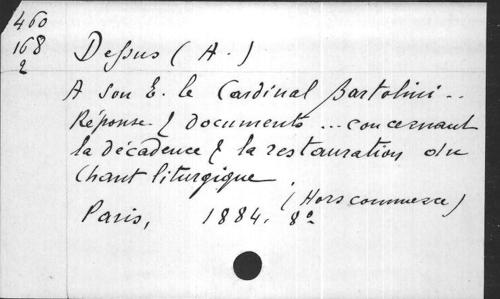 460
168
2
Dessus (A.)
A Son E. le Cardinal Bartolini..
Réponse & documents ... concernant
la décadence & la restauration du
Chant liturgique
(Hors commerce)
Paris, 1884. 8º